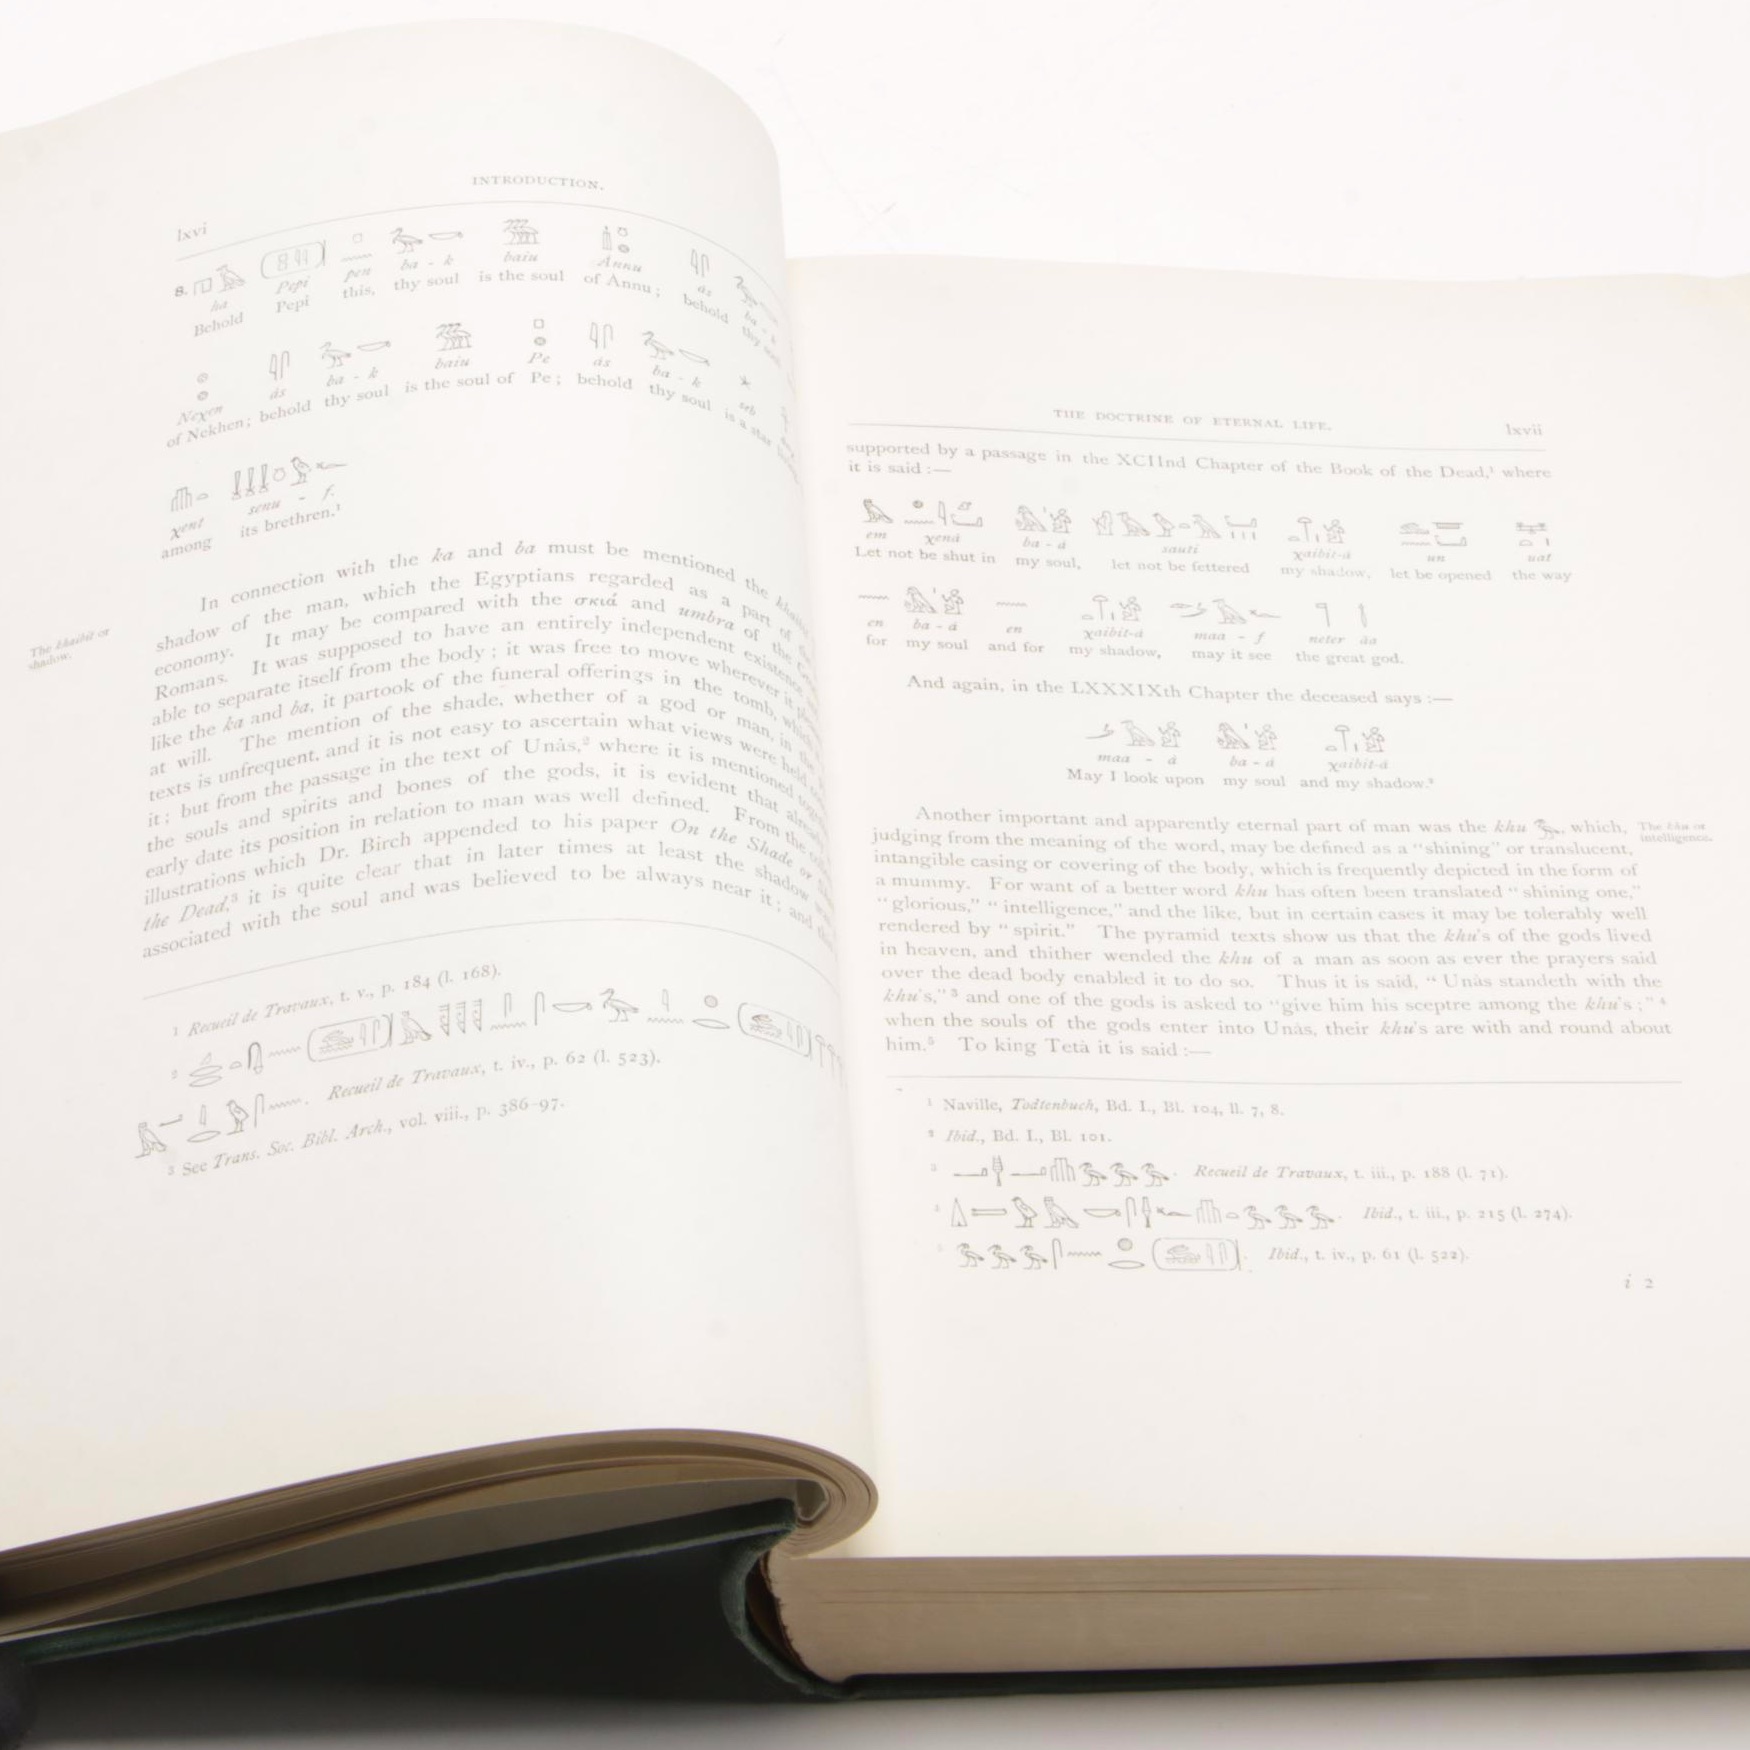 INTRODUCTION.
lxvi
8.
ha Pepi pen ba - k baiu Annu ȧs ba - k
Behold Pepi this, thy soul is the soul of Annu; behold thy
Nexen ȧs ba - k baiu Pe ȧs ba - k seb
of Nekhen; behold thy soul is the soul of Pe; behold thy soul is a star
χent senu - f.
among its brethren.¹
The khaibit or
shadow.
In connection with the ka and ba must be mentioned the
shadow of the man, which the Egyptians regarded as a part of
economy. It may be compared with the σκιά and umbra of the
Romans. It was supposed to have an entirely independent existence
able to separate itself from the body; it was free to move wherever it
like the ka and ba, it partook of the funeral offerings in the tomb, which
at will. The mention of the shade, whether of a god or man, in the
texts is unfrequent, and it is not easy to ascertain what views were held
it; but from the passage in the text of Unȧs,² where it is mentioned
the souls and spirits and bones of the gods, it is evident that
early date its position in relation to man was well defined. From the
illustrations which Dr. Birch appended to his paper On the Shade or
the Dead,³ it is quite clear that in later times at least the shadow
associated with the soul and was believed to be always near it; and
¹ Recueil de Travaux, t. v., p. 184 (l. 168).
²
Recueil de Travaux, t. iv., p. 62 (l. 523).
³ See Trans. Soc. Bibl. Arch., vol. viii., p. 386-97.
THE DOCTRINE OF ETERNAL LIFE. lxvii
supported by a passage in the XCIInd Chapter of the Book of the Dead,¹ where
it is said :—
em χenȧ ba - ȧ sauti χaibit-ȧ un uat
Let not be shut in my soul, let not be fettered my shadow, let be opened the way
en ba - ȧ en χaibit-ȧ maa - f neter āa
for my soul and for my shadow, may it see the great god.
And again, in the LXXXIXth Chapter the deceased says :—
maa - ȧ ba - ȧ χaibit-ȧ
May I look upon my soul and my shadow.²
Another important and apparently eternal part of man was the khu , which,
The khu or
intelligence.
judging from the meaning of the word, may be defined as a "shining" or translucent,
intangible casing or covering of the body, which is frequently depicted in the form of
a mummy. For want of a better word khu has often been translated "shining one,"
"glorious," "intelligence," and the like, but in certain cases it may be tolerably well
rendered by "spirit." The pyramid texts show us that the khu's of the gods lived
in heaven, and thither wended the khu of a man as soon as ever the prayers said
over the dead body enabled it to do so. Thus it is said, "Unȧs standeth with the
khu's,"³ and one of the gods is asked to "give him his sceptre among the khu's;"⁴
when the souls of the gods enter into Unȧs, their khu's are with and round about
him.⁵ To king Tetȧ it is said :—
¹ Naville, Todtenbuch, Bd. I., Bl. 104, ll. 7, 8.
² Ibid., Bd. I., Bl. 101.
³ Recueil de Travaux, t. iii., p. 188 (l. 71).
⁴ Ibid., t. iii., p. 215 (l. 274).
⁵ Ibid., t. iv., p. 61 (l. 522).
i 2